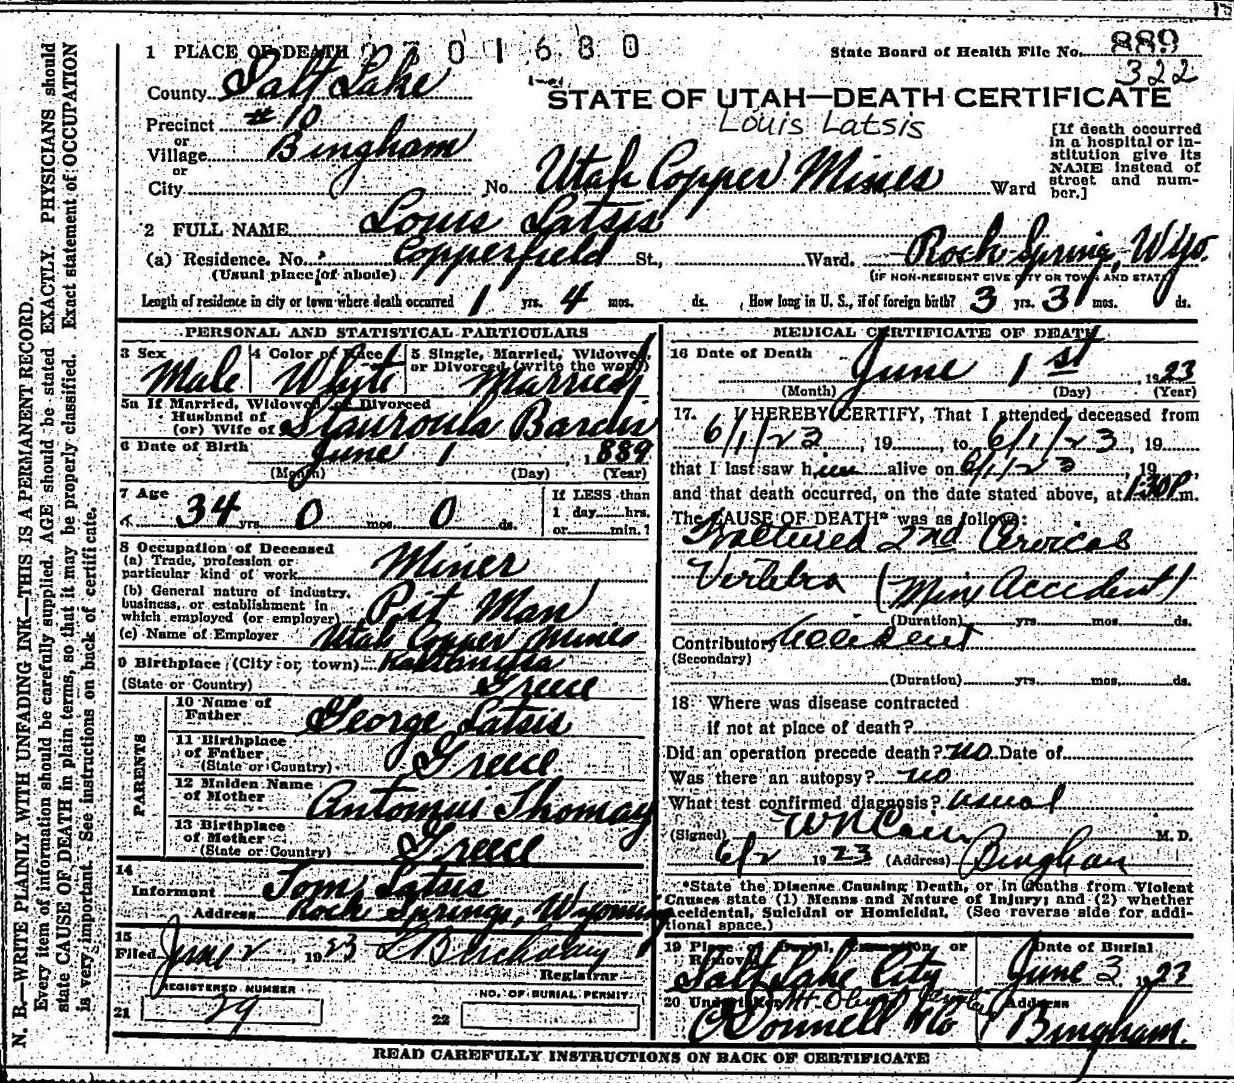 1 PLACE OF DEATH 01680
State Board of Health File No. 889
322
County Salt Lake
STATE OF UTAH—DEATH CERTIFICATE
Precinct #10
Louis Latsis
or
Village Bingham
or
City No. Utah Copper Mines Ward
[If death occurred
in a hospital or in-
stitution give its
NAME instead of
street and num-
ber.]
2 FULL NAME Louis Latsis
(a) Residence. No. Copperfield St., Ward. Rock Spring, Wyo.
(Usual place of abode) (IF NON-RESIDENT GIVE CITY OR TOWN AND STATE)
Length of residence in city or town where death occurred 1 yrs. 4 mos. ds. How long in U. S., if of foreign birth? 3 yrs. 3 mos. ds.
PERSONAL AND STATISTICAL PARTICULARS
3 Sex Male
4 Color or Race White
5 Single, Married, Widowed,
or Divorced (write the word)
Married
5a If Married, Widowed or Divorced
Husband of
(or) Wife of Stauroula
6 Date of Birth June 1, 1889
(Month) (Day) (Year)
7 Age
34 yrs. 0 mos. 0 ds.
If LESS than
1 day hrs.
or min.?
8 Occupation of Deceased
(a) Trade, profession or
particular kind of work Miner
(b) General nature of industry,
business, or establishment in
which employed (or employer) Pit Man
(c) Name of Employer Utah Copper Mines
9 Birthplace (City or town)
(State or Country) Greece
PARENTS
10 Name of
Father George Latsis
11 Birthplace
of Father
(State or Country) Greece
12 Maiden Name
of Mother
13 Birthplace
of Mother
(State or Country) Greece
14
Informant Tom Latsis
Address Rock Springs, Wyoming
15
Filed June 2, 1923
Registrar
REGISTERED NUMBER
21 29
NO. OF BURIAL PERMIT
22
MEDICAL CERTIFICATE OF DEATH
16 Date of Death June 1st, 1923
(Month) (Day) (Year)
17. I HEREBY CERTIFY, That I attended deceased from
6/1/23, 19 to 6/1/23, 19
that I last saw him alive on 6/1/23, 19
and that death occurred, on the date stated above, at 1:30P.m.
The CAUSE OF DEATH* was as follows:
Fractured 2nd Cervical
Vertebra (Mine Accident)
(Duration) yrs. mos. ds.
Contributory Accident
(Secondary)
(Duration) yrs. mos. ds.
18 Where was disease contracted
if not at place of death?
Did an operation precede death? no Date of
Was there an autopsy? no
What test confirmed diagnosis? usual
(Signed) M. D.
6/2 1923 (Address) Bingham
*State the Disease Causing Death, or in deaths from Violent
Causes state (1) Means and Nature of Injury; and (2) whether
Accidental, Suicidal or Homicidal. (See reverse side for addi-
tional space.)
19 Place of Burial, Cremation or
Removal
Salt Lake City
Date of Burial
June 3 1923
20 Undertaker Mt. Olivet
O'Donnell & Co
Address
Bingham.
READ CAREFULLY INSTRUCTIONS ON BACK OF CERTIFICATE
N. B.—WRITE PLAINLY WITH UNFADING INK—THIS IS A PERMANENT RECORD.
Every item of information should be carefully supplied. AGE should be stated EXACTLY. PHYSICIANS should
state CAUSE OF DEATH in plain terms, so that it may be properly classified. Exact statement of OCCUPATION
is very important. See instructions on back of certificate.